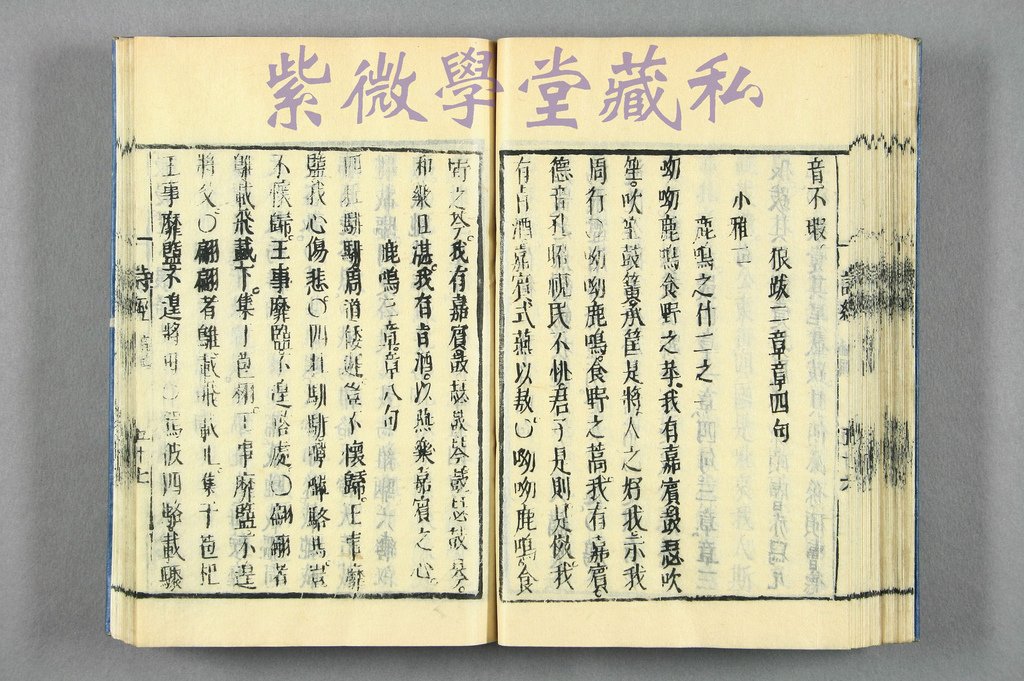 紫微學堂藏私
詩經
音不瑕
狼跋二章章四句
小雅二
鹿鳴之什二之一
呦呦鹿鳴食野之苹。我有嘉賓。鼓瑟吹
笙。吹笙鼓簧。承筐是將。人之好我。示我
周行。〇呦呦鹿鳴。食野之蒿。我有嘉賓。
德音孔昭。視民不恌。君子是則是傚。我
有旨酒。嘉賓式燕以敖。〇呦呦鹿鳴。食
之芩。我有嘉賓。鼓瑟鼓琴。鼓瑟鼓琴。
和樂且湛。我有旨酒。以燕樂嘉賓之心。
鹿鳴三章。章八句
四牡騑騑。周道倭遲。豈不懷歸。王事靡
盬。我心傷悲〇四牡騑騑。嘽嘽駱馬。豈
不懷歸。王事靡盬。不遑啓處〇翩翩者
鵻。載飛載下。集于苞栩。王事靡盬。不遑
將父。〇翩翩者鵻。載飛載止。集于苞杞
王事靡盬。不遑將母〇駕彼四駱。載驟
詩經
二十七